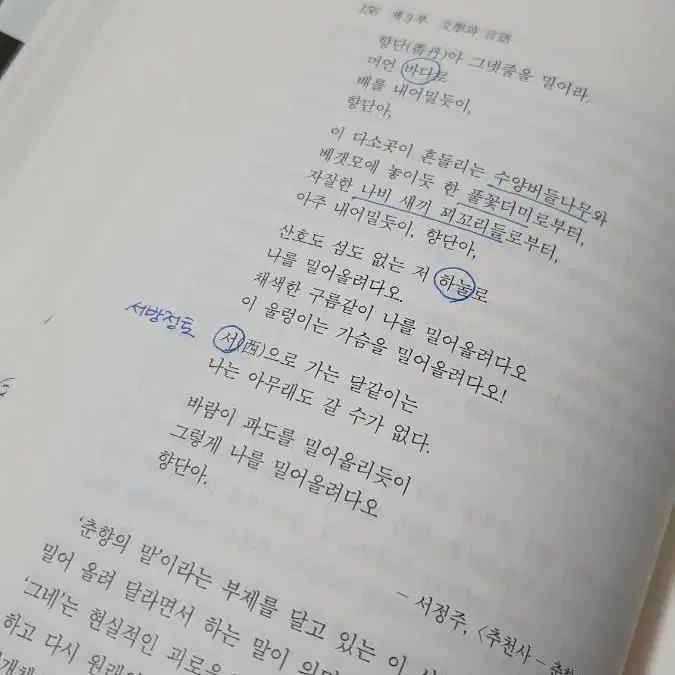 156 제3부 文學과 言語
향단(香丹)아 그넷줄을 밀어라.
머언 바다로
배를 내어밀듯이,
향단아,
이 다소곳이 흔들리는 수양버들나무와
베갯모에 놓이듯 한 풀꽃더미로부터,
자잘한 나비 새끼 꾀꼬리들로부터,
아주 내어밀듯이, 향단아,
산호도 섬도 없는 저 하눌로
나를 밀어올려다오.
채색한 구름같이 나를 밀어올려다오
이 울렁이는 가슴을 밀어올려다오!
서방정토
서(西)으로 가는 달같이는
나는 아무래도 갈 수가 없다.
바람이 파도를 밀어올리듯이
그렇게 나를 밀어올려다오
향단아.
– 서정주, 〈추천사 –
‘춘향의 말’이라는 부제를 달고 있는 이
밀어 올려 달라면서 하는 말이
‘그네’는 현실적인
하고 다시